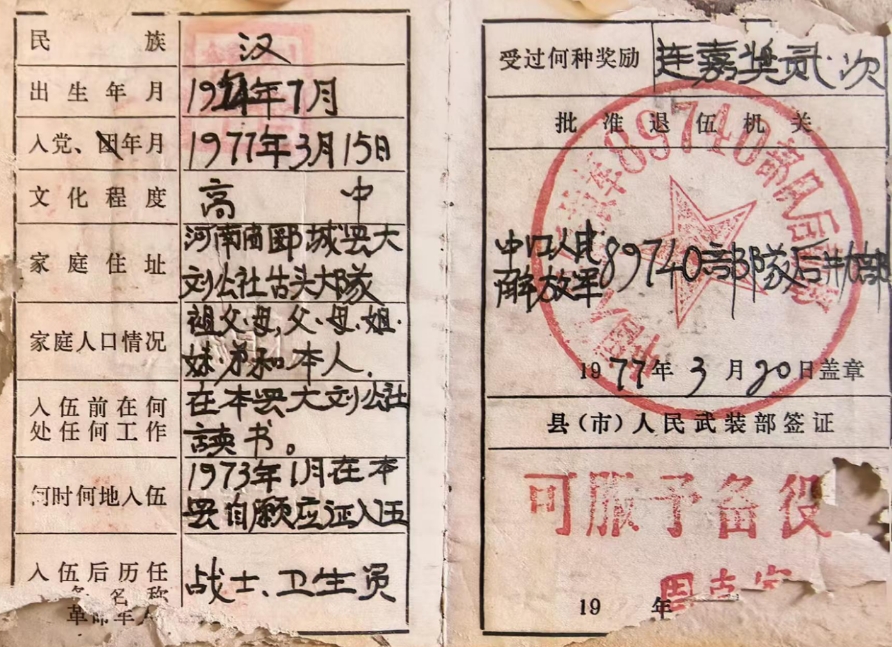 民族 汉
出生年月 19 年7月
入党、团年月 1977年3月15日
文化程度 高中
家庭住址 河南商郾城县大
刘公社古头大隊
家庭人口情况 祖父·母,父·母·姐·
妹·弟和本人.
入伍前在何处任何工作 在本县大刘公社
读书。
何时何地入伍 1973年1月在本
县自願应证入伍
入伍后历任 战士、卫生员
名称
革命军
受过何种奖励 连嘉奖贰次
批准退伍机关
89740部队后
中 人民
解放军89740部隊后勤部
1977年3月20日盖章
县(市)人民武装部签证
可服予备役
19 年